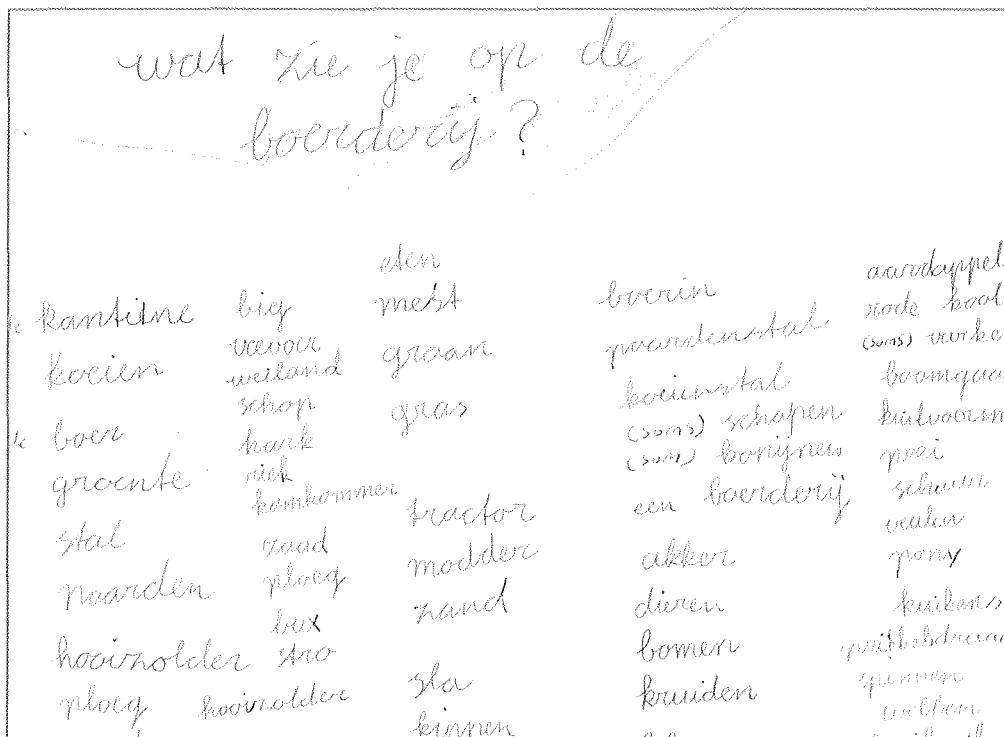 wat zie je op de
boerderij?
kantine
koeien
boer
groente
stal
paarden
hooizolder
ploeg
big
veevoer
weiland
schop
hark
riek
komkommer
zaad
ploeg
bux
stro
hooizolder
eten
mest
graan
gras
tractor
modder
zand
sla
kippen
boerin
paardenstal
koeienstal
(soms) schapen
(soms) konijnen
een boerderij
akker
dieren
bomen
kruiden
aardappel
rode kool
(soms) varke
boomgaa
kuilvoer
prei
schuur
veulen
pony
kuikens
prikkeldraa
spinnen
webben